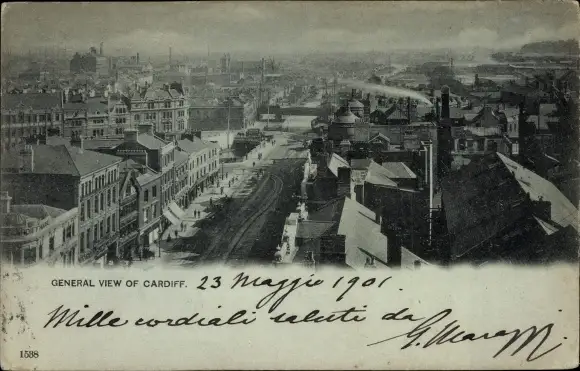 GENERAL VIEW OF CARDIFF. 23 Maggio 1901.
Mille cordiali saluti da G. Marazzi
1538